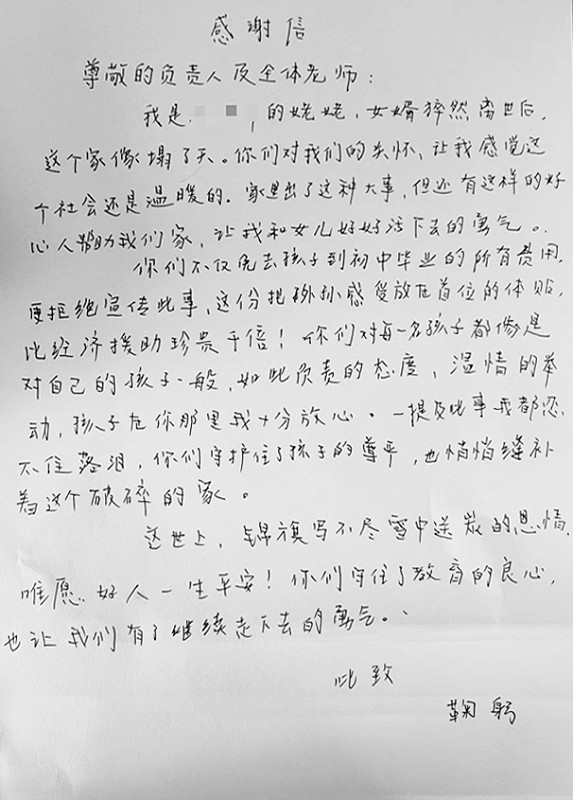 感谢信
尊敬的负责人及全体老师：
我是 的姥姥，女婿猝然离世后，
这个家像塌了天。你们对我们的关怀，让我感觉这
个社会还是温暖的。家里出了这种大事，但还有这样的好
心人帮助我们家，让我和女儿好好活下去的勇气。
你们不仅免去孩子到初中毕业的所有费用，
更拒绝宣传此事，这份把外孙感受放在首位的体贴，
比经济援助珍贵千倍！你们对每一名孩子都像是
对自己的孩子一般，如此负责的态度，温情的举
动，孩子在你那里我十分放心。一提及此事我都忍
不住落泪，你们守护住了孩子的尊严，也悄悄缝补
着这个破碎的家。
这世上，锦旗写不尽雪中送炭的恩情，
唯愿好人一生平安！你们守住了教育的良心，
也让我们有了继续走下去的勇气。
此致
鞠躬